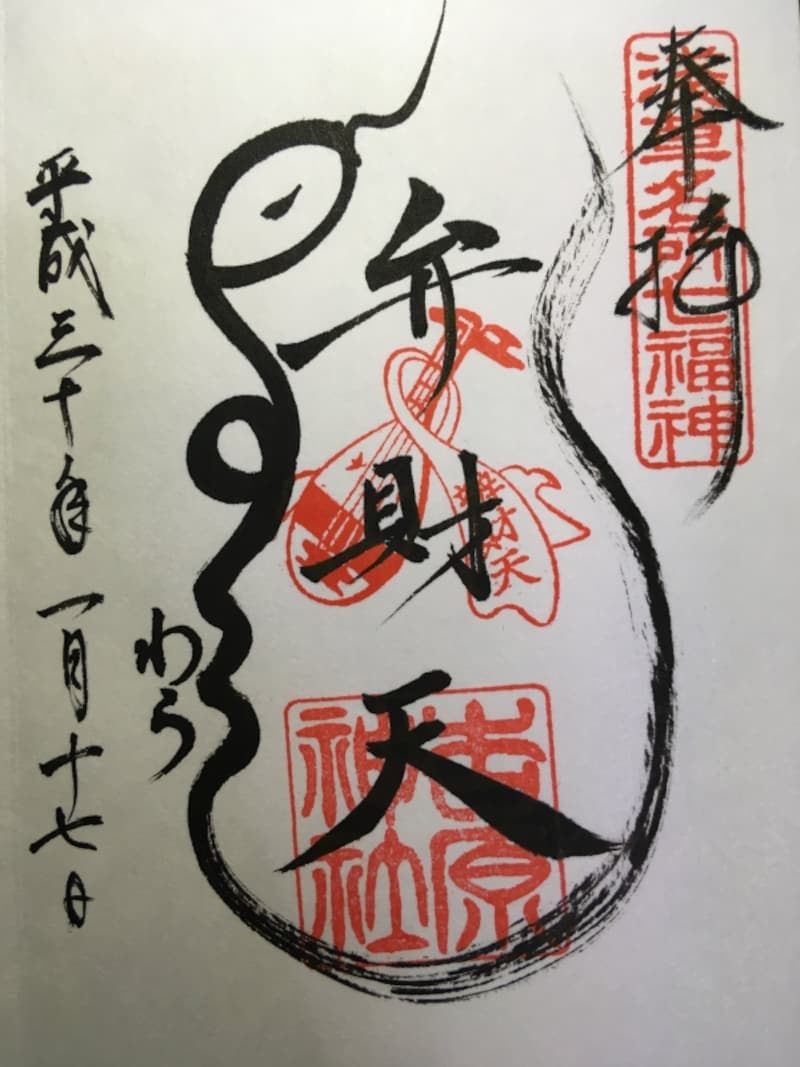 奉拝
浅草名所七福神
弁財天
弁才天
吉原神社
わう
平成三十年一月十七日